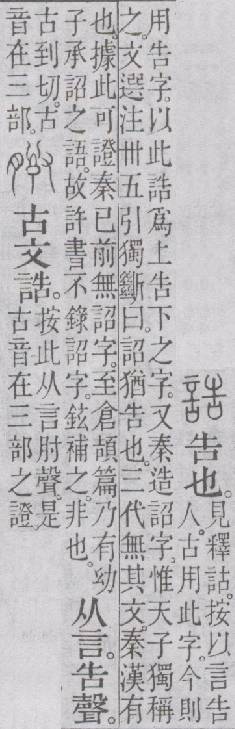 告也。
見釋詁。按以言告
人。古用此字。今則
用告字。以此誥爲上告下之字。又秦造詔字。惟天子獨稱
之。文選注卌五引獨斷曰。詔猶告也。三代無其文。秦漢有
也。據此可證秦已前無詔字。至倉頡篇乃有幼
子承詔之語。故許書不錄詔字。鉉補之。非也。
从言。告聲。
古到切。古
音在三部。
古文誥。
按此从言肘聲。是
古音在三部之證